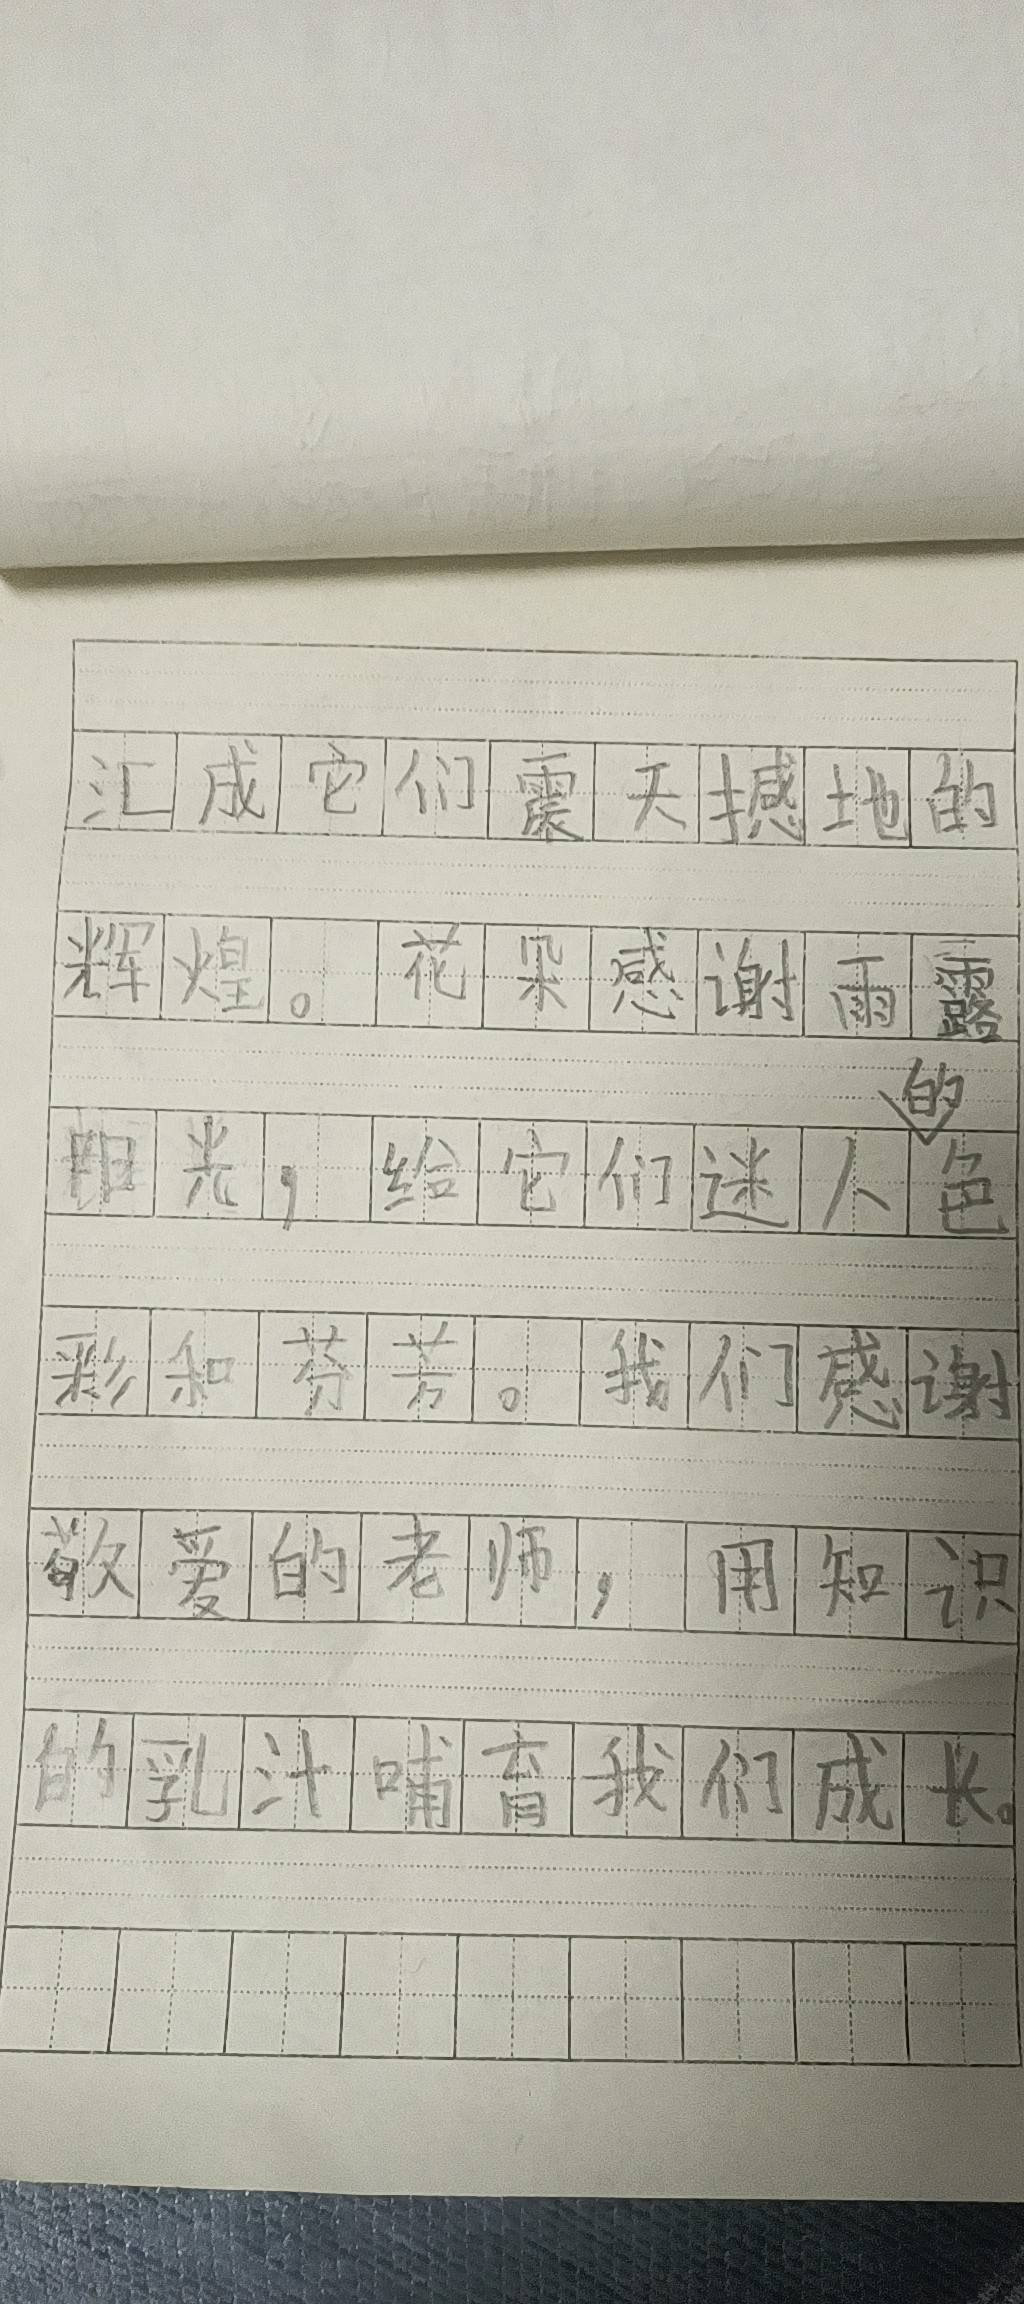 汇成它们震天撼地的
辉煌。花朵感谢雨露
阳光,给它们迷人的色
彩和芬芳。我们感谢
敬爱的老师,用知识
的乳汁哺育我们成长。